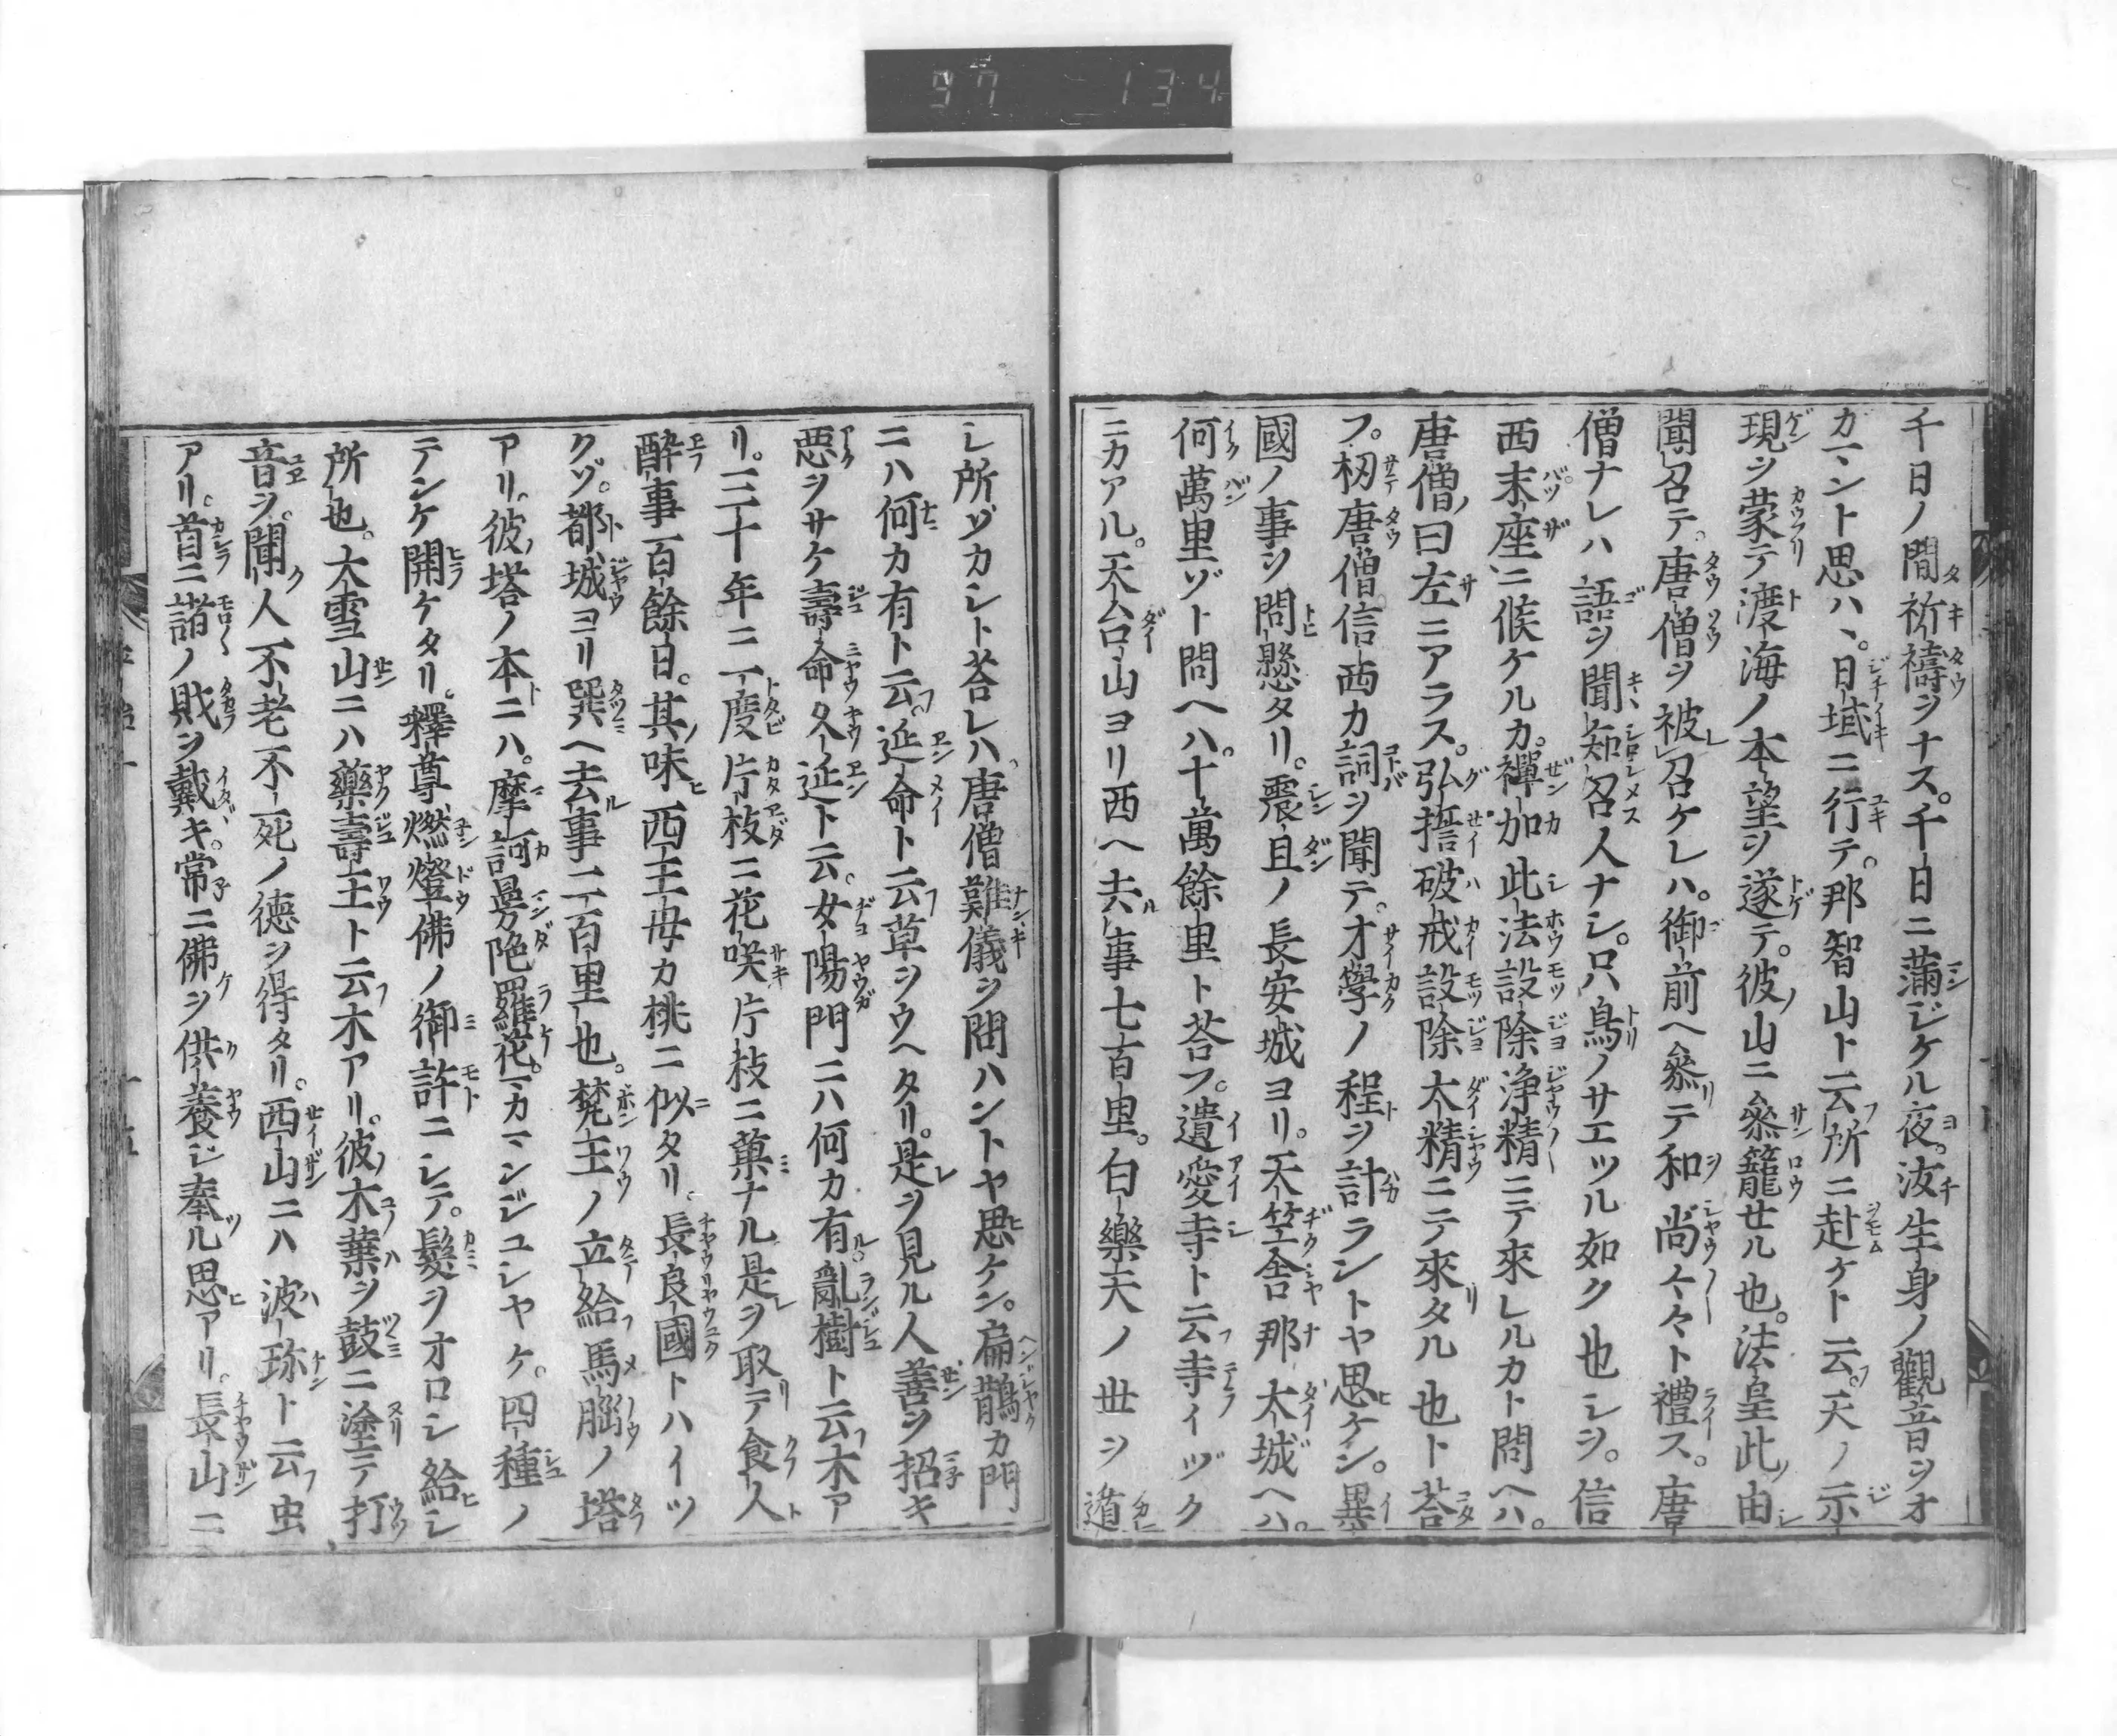 千日ノ間祈禱ヲナス。千日ニ滿ジケル夜。汝生身ノ觀音ヲオ
ガマント思ハヾ。日域ニ行テ。那智山ト云所ニ赴ケト云。天ノ示
現ヲ蒙テ渡海ノ本望ヲ遂テ。彼山ニ參籠セル也。法皇此由
聞召テ。唐僧ヲ被召ケレハ。御前ヘ參テ和尚々々ト禮ス。唐
僧ナレハ語ヲ聞知召人ナシ。只鳥ノサエツル如ク也シヲ。信
西末座ニ候ケルカ。禪加此法設除淨精ニテ來レルカト問ヘハ。
唐僧曰左ニアラス。弘誓破戒設除太精ニテ來タル也ト荅
フ。扨唐僧信西カ詞ヲ聞テ。才學ノ程ヲ計ラントヤ思ケン。異
國ノ事ヲ問懸タリ。震且ノ長安城ヨリ。天竺舍那大城ヘハ。
何萬里ゾト問ヘハ。十萬餘里ト荅フ。遺愛寺ト云寺イヅク
ニカアル。天台山ヨリ西ヘ去事七百里。白樂天ノ世ヲ遁
レ所ゾカシト荅レハ。唐僧難儀ヲ問ハントヤ思ケン。扁鵲カ門
ニハ何カ有ト云。延命ト云草ヲウヘタリ。是ヲ見ル人善ヲ招キ
惡ヲサケ壽命久延ト云。女陽門ニハ何カ有。亂樹ト云木ア
リ。三十年ニ一度片枝ニ花咲片枝ニ菓ナル是ヲ取テ食人
醉事一百餘日。其味西王母カ桃ニ似タリ。長良國トハイツ
クゾ。都城ヨリ巽ヘ去事二百里也。梵王ノ立給馬腦ノ塔
アリ。彼塔ノ本ニハ。摩訶曼陁羅花。マカマンジユシヤケ。四種ノ
テンケ開ケタリ。釋尊燃燈佛ノ御許ニシテ。髮ヲオロシ給シ
所也。大雪山ニハ藥壽王ト云木アリ。彼木葉ヲ鼓ニ塗テ打
音ヲ聞人不老不死ノ德ヲ得タリ。西山ニハ波珎ト云虫
アリ。首ニ諸ノ財ヲ戴キ。常ニ佛ヲ供養シ奉ル思アリ。長山ニ
97 134